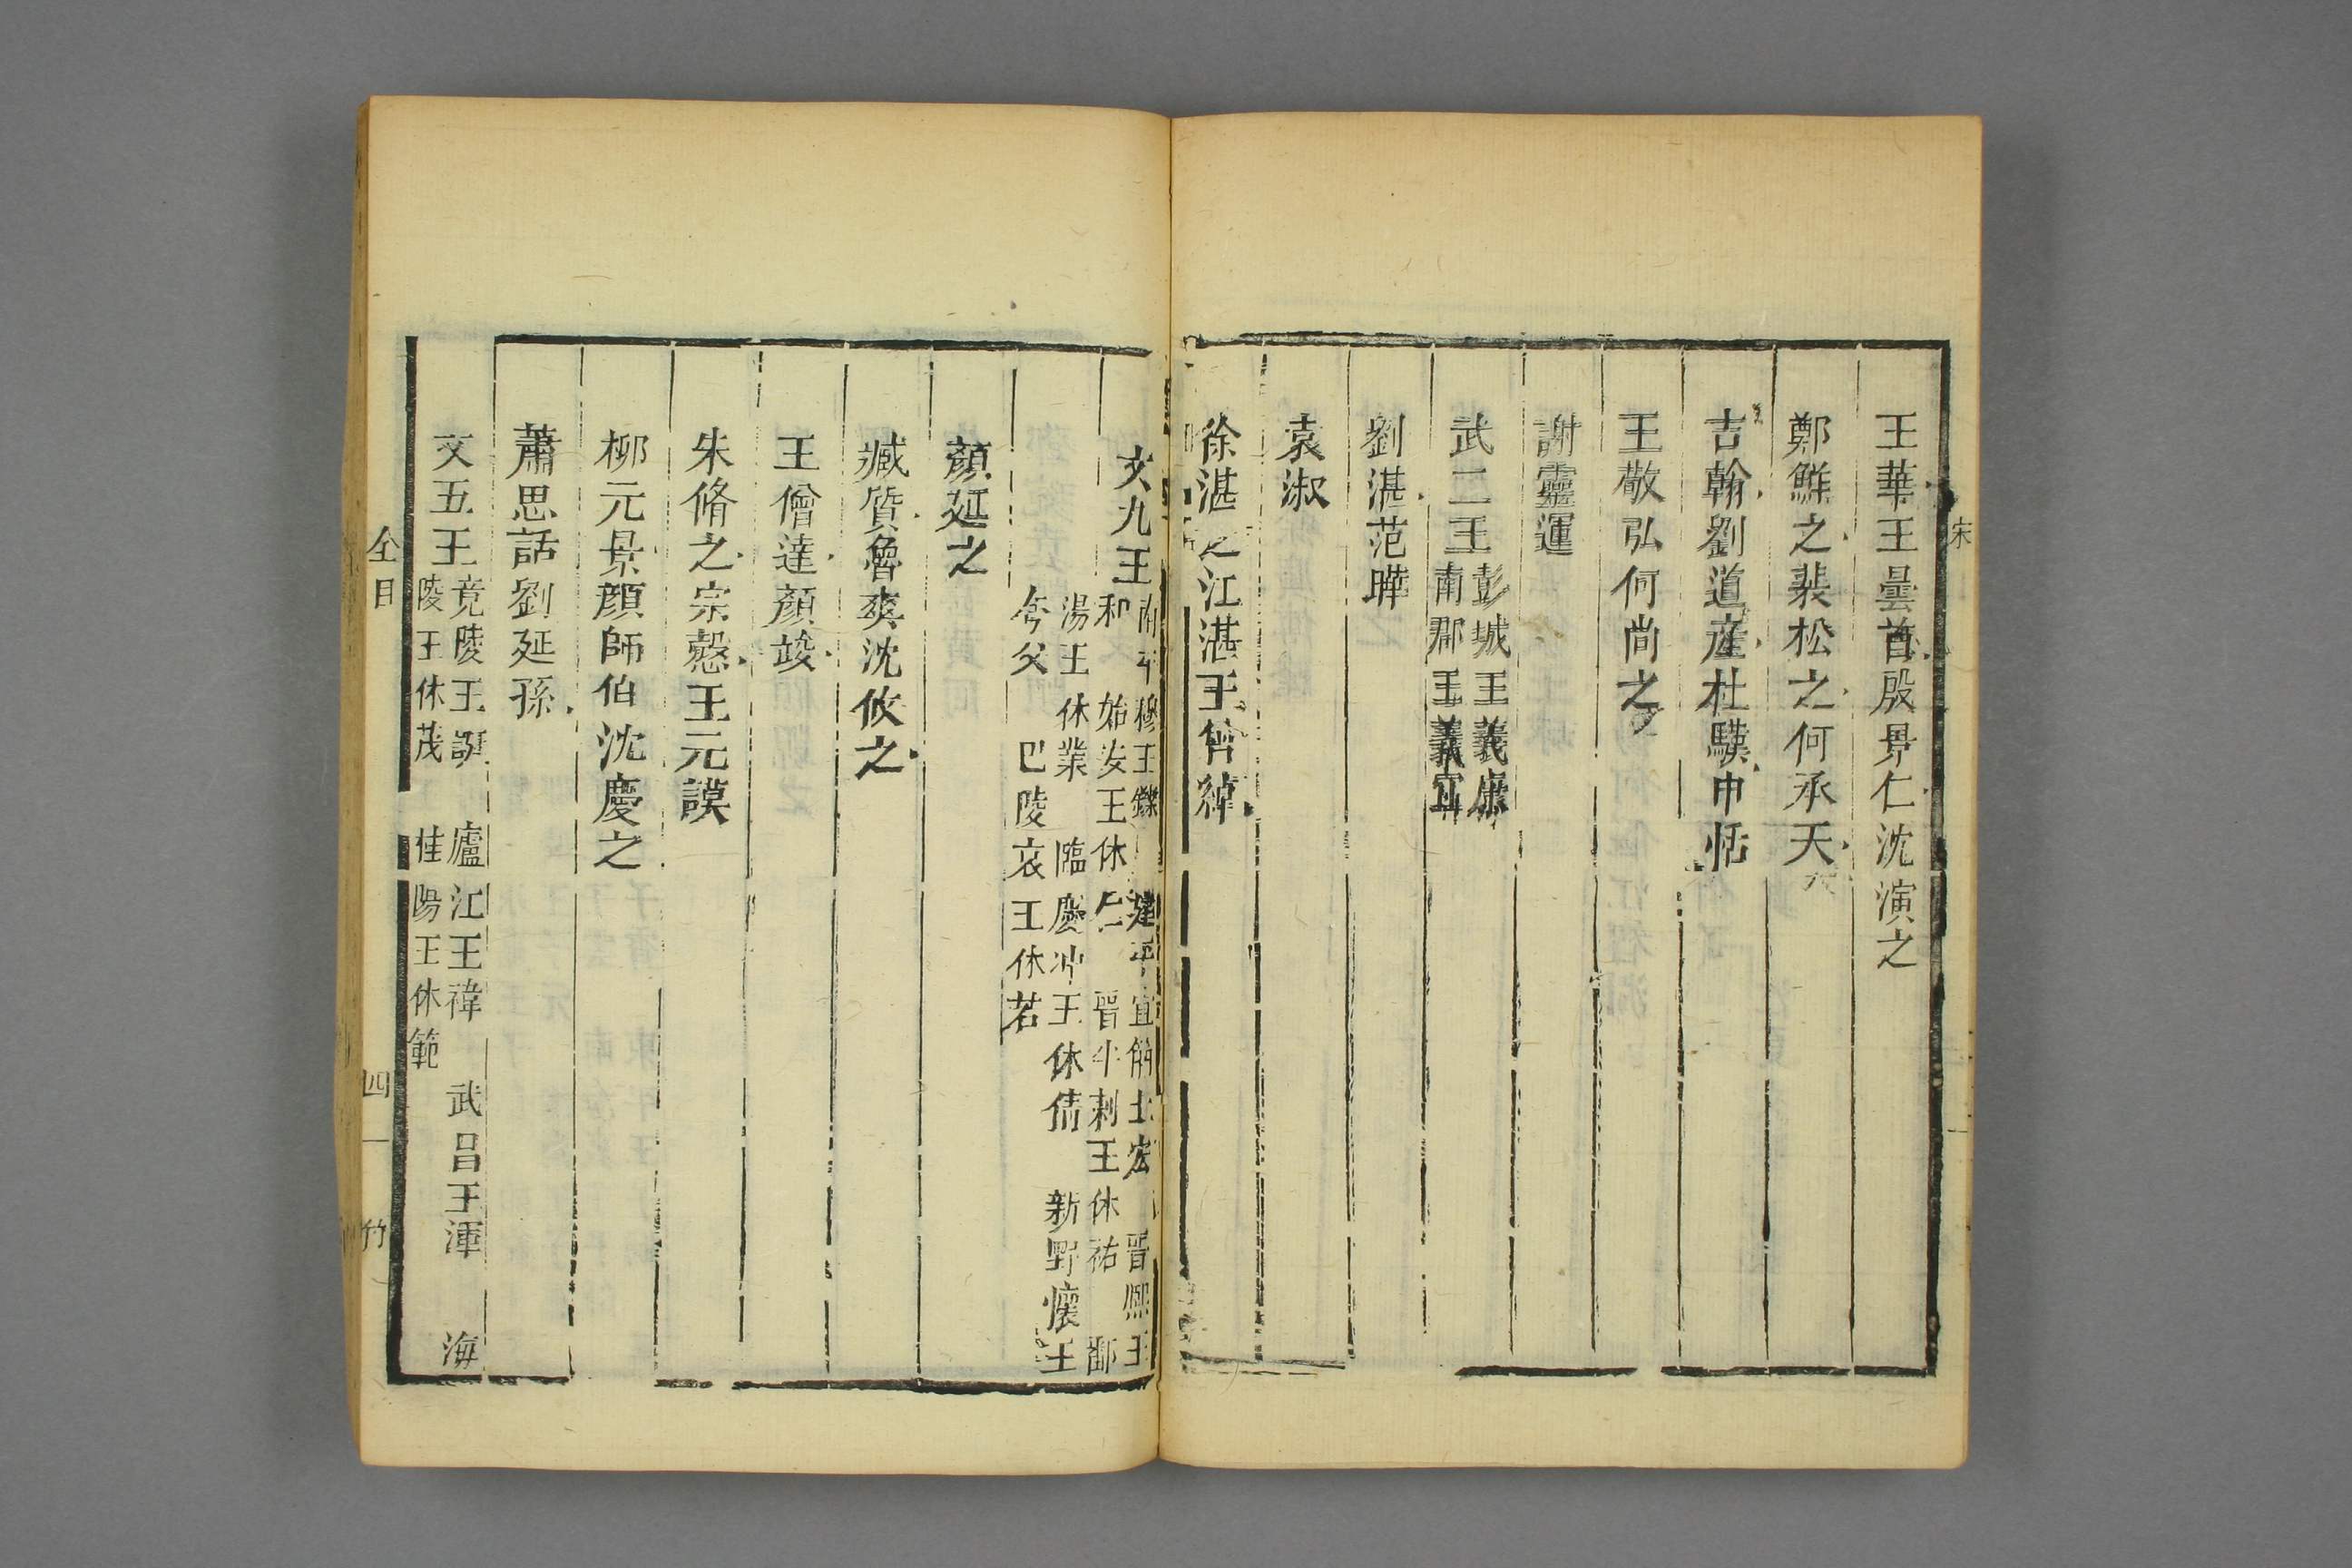 宋
王華王曇首殷景仁沈演之
鄭鮮之裴松之何承天
吉翰劉道產杜驥申恬
王敬弘何尚之
謝靈運
武二王
彭城王義康
南郡王義宣
劉湛范曄
袁淑
徐湛之江湛王僧綽
文九王
南平穆王鑠 建平宣簡王宏 晉熙王
和 始安王休仁 晉平剌王休祐 鄱
湯王 休業 臨慶沖王休倩 新野懷王
夸父 巴陵哀王休若
顏延之
臧質魯爽沈攸之
王僧達顏竣
朱脩之宗慤王元謨
柳元景顏師伯沈慶之
蕭思話劉延孫
文五王
竟陵王誕 廬江王禕 武昌王渾 海
陵王休茂 桂陽王休範
全目 四 竹